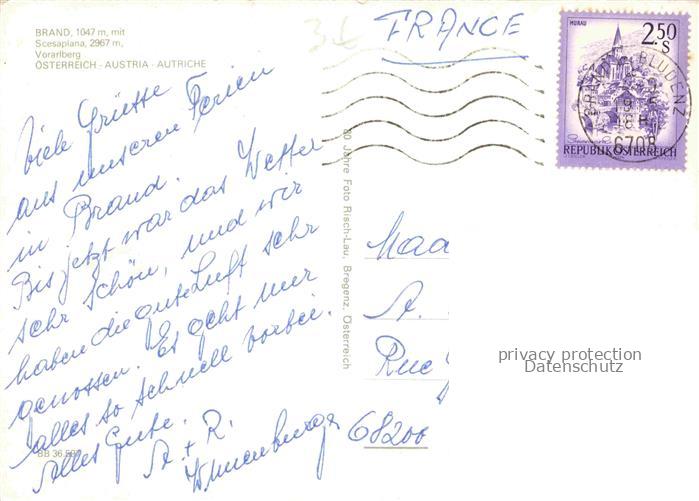 BRAND, 1047 m, mit
Scesaplana, 2967 m,
Vorarlberg
ÖSTERREICH - AUSTRIA - AUTRICHE
Viele Grüsse
aus unseren Ferien
in Brand.
Bis jetzt war das Wetter
sehr schön, und wir
haben die gute Luft sehr
genossen. Es geht nur
alles so schnell vorbei.
Alles Gute.
A. + R.
BB 36.
Jahre Foto Risch-Lau, Bregenz, Österreich
FRANCE
MURAU
2.50
S
BRAND BLUDENZ
6708
REPUBLIK ÖSTERREICH
Maa
A.
Rue
68200
privacy protection
Datenschutz